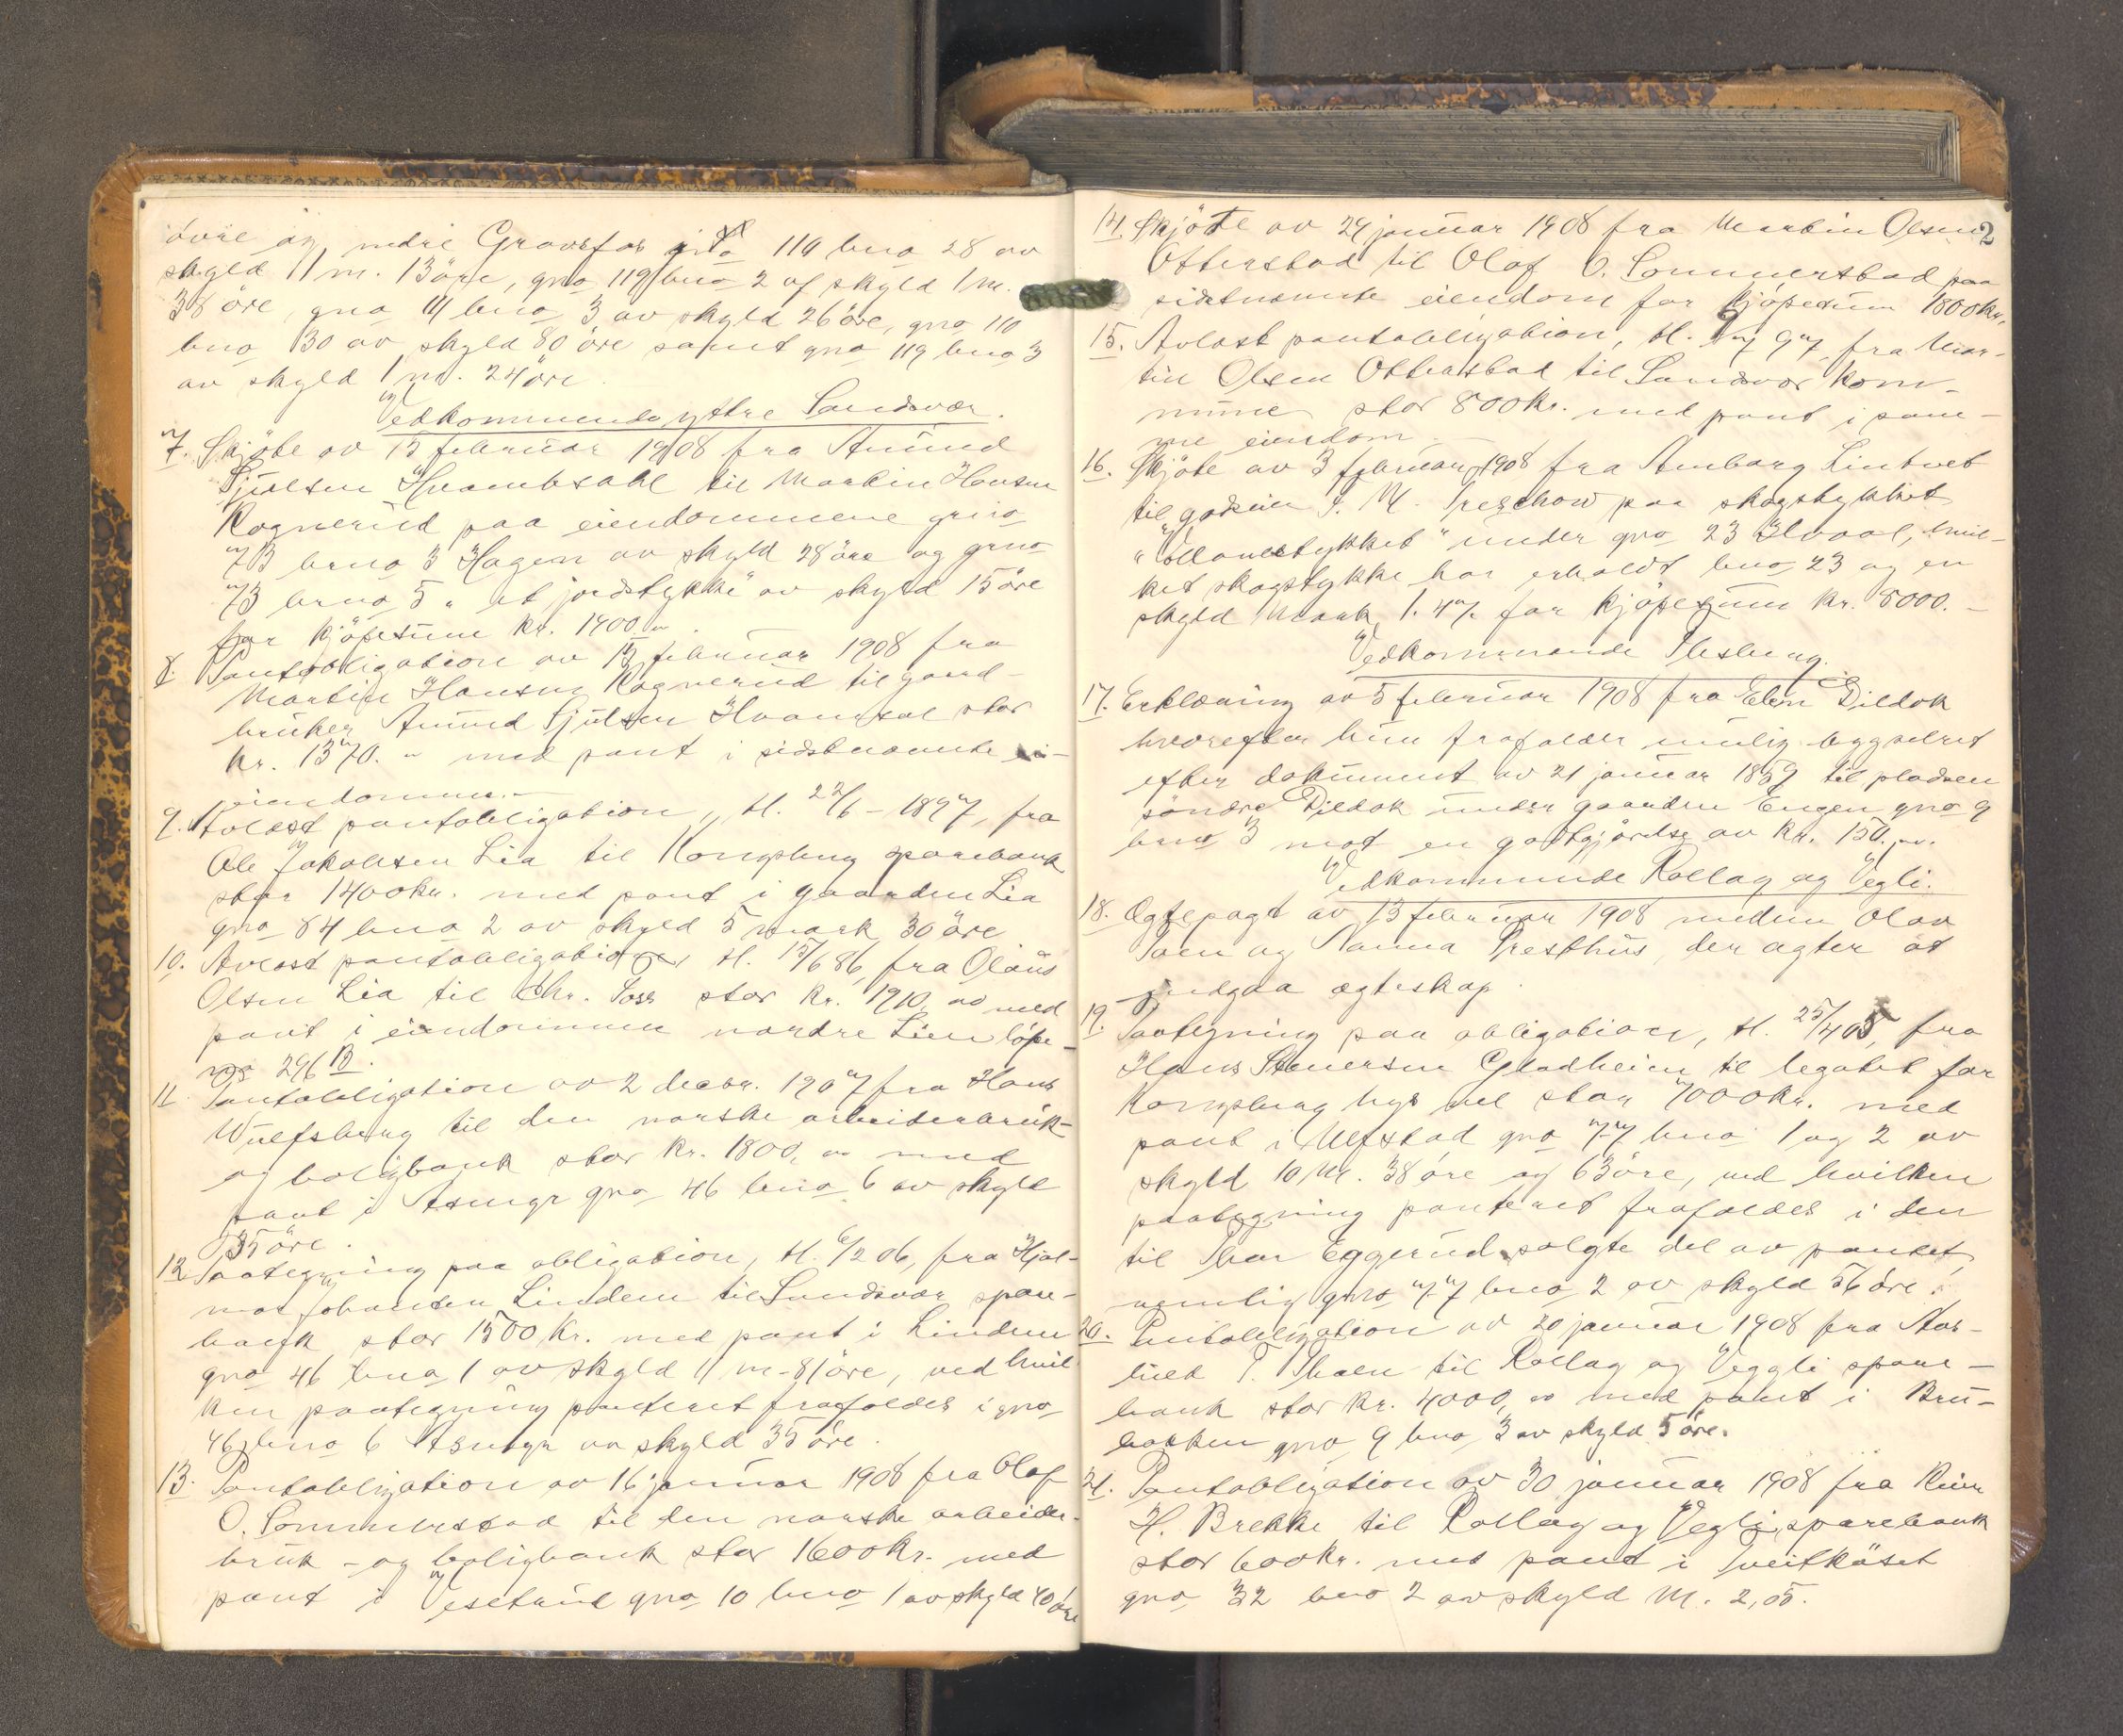 övre og nedre Gravefos gno 110 bno 28 av
skyld 1 m. 13 öre, gno 119 bno 2 af skyld 1 m.
38 öre, gno 111 bno 3 av skyld 26 öre, gno 110
bno 30 av skyld 80 öre samt gno 119 bno 3
av skyld 1 m. 24 öre.
Vedkommende yttre Sandsvær.
7. Skjöte av 15 februar 1908 fra Amund
Sjulsen Hvambsahl til Martin Hansen
Rognerud paa eiendommene grno
73 brno 3 Hagen av skyld 28 öre og grno
73 brno 5 "et jordstykke" av skyld 15 öre
for kjöpesum kr. 1400
8. Pantobligation av 15 februar 1908 fra
Martin Hansen Rognerud til gaard-
bruker Amund Sjulsen Hvamsal stor
kr. 1370. - med pant i sidstnævnte ei-
eiendomme.-
9. Avlöst pantobligation, tl. 22/6 - 1897, fra
Ole Jakobsen Lia til Kongsberg sparebank
stor 1400 kr. med pant i gaarden Lia
gno 84 bno 2 av skyld 5 mark 30 öre
10. Avlöst pantobligation tl. 15/6 86, fra Olaus
Olsen Lia til Chr. Foss stor kr. 1910, oo med
pant i eiendommen nordre Lien löpe-
no 296 B.
11. Pantobligation av 2 decbr. 1907 fra Hans
Wulfsberg til den norske arbeiderbruk-
og boligbank stor kr. 1800, oo med
pant i gno 46 bno 6 av skyld
35 öre.
12. Paategning paa obligation, tl. 6/2 06, fra Hjal-
mar Johansen Lindem til Sandsvær spare-
bank stor 1500 kr. med pant i Lindem
gno 46 bno 1 av skyld 1 m - 81 öre, ved hvil
ken paategning panteret frafaldes i gno
46 bno 6 av skyld 35 öre.
13. Pantobligation av 16 januar 1908 fra Olaf
O. Sommerstad til den norske arbeider-
bruk - og boligbank stor 1600 kr. med
pant i Vesetrud gno 10 bno 1 av skyld 40 öre
2
14. Skjöte av 24 januar 1908 fra Martin Olsen
Otterstad til Olaf O. Sommerstad paa
sidstnævnte eiendom for kjöpesum 1800 kr.
15. Avlöst pantobligation, tl. 97, fra Mar-
tin Olsen Otterstad til Sandsvær kom-
mune stor 800 kr. med pant i sam-
me eiendom.
16. Skjöte av 3 februar 1908 fra Amborg Lintvet
til godseier F. M. Treschow paa skogstykket
"Monestykket" under gno 23 Hvaal, hvil-
ket skogstykke har erholdt bno 23 og en
skyld Mark 1.47. for kjöpesum kr. 8000. -
Vedkommende Flesberg.
17. Erklæring av 5 februar 1908 fra Elen Dildok
hvorefter hun frafalder mulig bygselret
efter dokument av 21 januar 1859 til pladsen
söndre Dildok under gaarden Engen gno 9
bno 3 mot en godtgjörelse av kr. 150.
Vedkommende Rollag og Vegli.
18. Ægtepagt av 13 februar 1908 mellem Olav
Toen og Nanna Presthus, der agter at
indgaa ægteskap.
19. Paategning paa obligation, tl. 25/4 05, fra
Hans Stenersen Gladheim til legatet for
Kongsberg bys vel stor 7000 kr. med
pant i Ulfstad gno 77 bno 1 og 2 av
skyld 10 M. 38 öre og 63 öre, ved hvilken
paategning panteret frafaldes i den
til Thor Eggerud solgte del av pantet,
nemlig gno 77 bno 2 av skyld 56 öre.
20. Pantobligation av 20 januar 1908 fra Aas-
lild T. Thoen til Rollag og Veggli spare-
bank stor kr. 4000, oo med pant i Bru-
bakken gno 9 bno 3 av skyld 5 öre.
21. Pantobligation av 30 januar 1908 fra Reier
H. Brekke til Rollag og Vegli sparebank
stor 600 kr. med pant i Tveitkåset
gno 32 bno 2 av skyld M. 2,05.